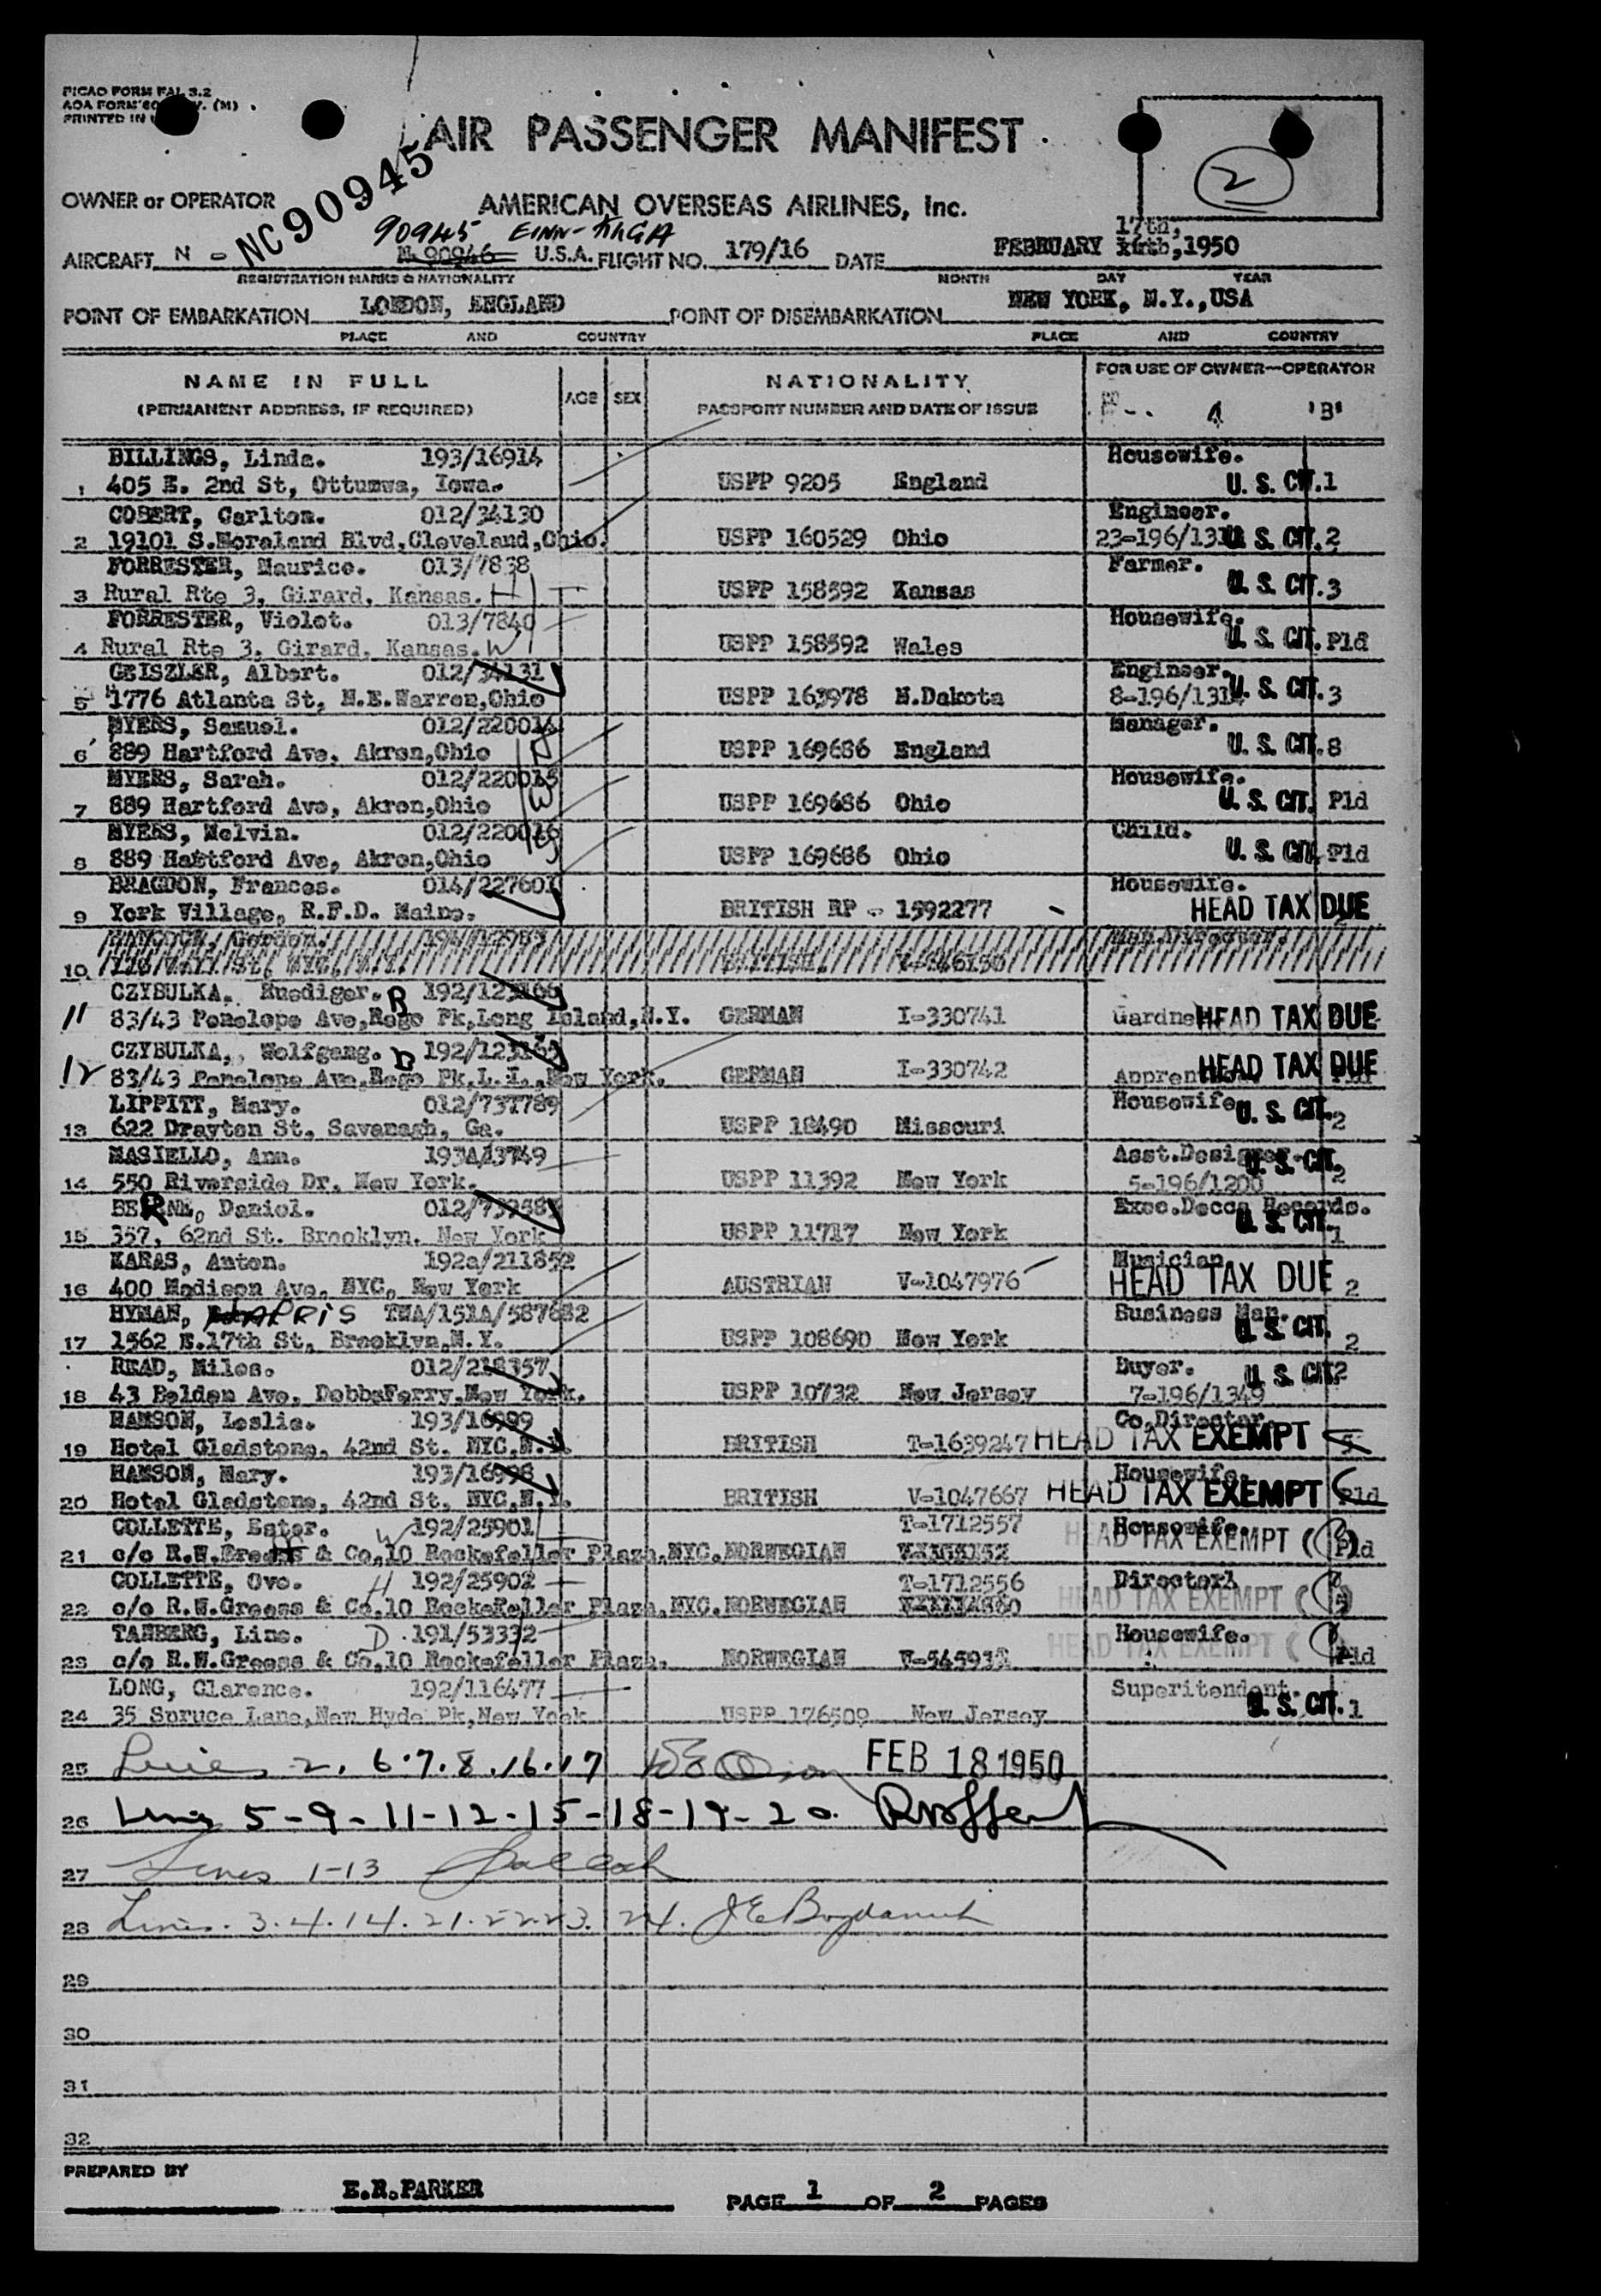 PICAO FORM FAL 3.2
AOA FORM 60 V. (M)
PRINTED IN
AIR PASSENGER MANIFEST
2
NC90945
OWNER or OPERATOR AMERICAN OVERSEAS AIRLINES, Inc.
90945 17th,
AIRCRAFT N - N-90946 U.S.A. FLIGHT NO. 179/16 DATE FEBRUARY 16th,1950
REGISTRATION MARKS & NATIONALITY MONTH DAY YEAR
POINT OF EMBARKATION LONDON, ENGLAND POINT OF DISEMBARKATION NEW YORK, N.Y.,USA
PLACE AND COUNTRY PLACE AND COUNTRY
NAME IN FULL AGE SEX NATIONALITY FOR USE OF OWNER—OPERATOR
(PERMANENT ADDRESS, IF REQUIRED) PASSPORT NUMBER AND DATE OF ISSUE 4 'B'
BILLINGS, Linda. 193/16914 Housewife.
1 405 E. 2nd St, Ottumwa, Iowa. USPP 9205 England U. S. CIT. 1
COBERT, Carlton. 012/34130 Engineer.
2 19101 S.Moreland Blvd,Cleveland,Ohio. USPP 160529 Ohio 23-196/131 U. S. CIT. 2
FORRESTER, Maurice. 013/7838 Farmer.
3 Rural Rte 3, Girard, Kansas. H USPP 158592 Kansas U. S. CIT. 3
FORRESTER, Violet. 013/7840 Housewife.
4 Rural Rte 3, Girard, Kansas. W USPP 158592 Wales U. S. CIT. Pld
GEISZLER, Albert. 012/34131 Engineer.
5 1776 Atlanta St, N.E.Warren,Ohio USPP 163978 N.Dakota 8-196/131 U. S. CIT. 3
MYERS, Samuel. 012/220014 Manager.
6 889 Hartford Ave, Akron,Ohio USPP 169686 England U. S. CIT. 8
MYERS, Sarah. 012/220015 Housewife.
7 889 Hartford Ave, Akron,Ohio USPP 169686 Ohio U. S. CIT. Pld
MYERS, Melvin. 012/220016 Child.
8 889 Hartford Ave, Akron,Ohio USPP 169686 Ohio U. S. CIT. Pld
BRAGDON, Frances. 014/227601 Housewife.
9 York Village, R.F.D. Maine. BRITISH RP - 1592277 HEAD TAX DUE
10
CZYBULKA, Ruediger. B 192/123166
11 83/43 Penelope Ave,Rego Pk,Long Island,N.Y. GERMAN I-330741 Gardner HEAD TAX DUE
CZYBULKA, Wolfgang. B 192/123165
12 83/43 Penelope Ave,Rego Pk,L.I.,New York. GERMAN I-330742 Appren HEAD TAX DUE
LIPPITT, Mary. 012/737789 Housewife
13 622 Drayton St, Savanagh, Ga. USPP 18490 Missouri U. S. CIT. 2
MASIELLO, Ann. 193A/13749 Asst.Designer.
14 550 Riverside Dr, New York. USPP 11392 New York 5-196/1200 U. S. CIT. 2
BERNE, Daniel. 012/739583 Exec.Decca Records.
15 357, 62nd St. Brooklyn, New York USPP 11717 New York U. S. CIT. 1
KARAS, Anton. 192a/211852 Musician
16 400 Madison Ave, NYC, New York AUSTRIAN V-1047976 HEAD TAX DUE 2
HYMAN, HARRIS TWA/151A/587682 Business Man.
17 1562 E.17th St, Brooklyn,N.Y. USPP 108690 New York U. S. CIT. 2
READ, Miles. 012/218357 Buyer. U. S. CIT 2
18 43 Belden Ave, DobbsFerry,New York. USPP 10732 New Jersey 7-196/1349
HAMSON, Leslie. 193/16999 Co.Director.
19 Hotel Gladstone, 42nd St. NYC,N.Y. BRITISH T-1639247 HEAD TAX EXEMPT 5
HAMSON, Mary. 193/16998 Housewife.
20 Hotel Gladstone, 42nd St, NYC,N.Y. BRITISH V-1047667 HEAD TAX EXEMPT Pld
COLLETTE, Ester. W 192/25901 T-1712557 Housewife.
21 c/o R.W.Greess & Co,10 Rockefeller Plaza,NYC. NORWEGIAN HEAD TAX EXEMPT (3) Pld
COLLETTE, Ove. H 192/25902 T-1712556 Director
22 c/o R.W.Greess & Co,10 Rockefeller Plaza,NYC. NORWEGIAN HEAD TAX EXEMPT
TANBERG, Line. D 191/53332 Housewife.
23 c/o R.W.Greess & Co,10 Rockefeller Plaza. NORWEGIAN V-545912 HEAD TAX EXEMPT Pld
LONG, Clarence. 192/116477 Superitendent.
24 35 Spruce Lane,New Hyde Pk,New York USPP 176509 New Jersey U. S. CIT. 1
25 Lines 2. 6.7.8.16.17 FEB 18 1950
26 Lines 5-9-11-12-15-18-19-20.
27 Lines 1-13
28 Lines. 3.4.14.21.22.23. 24.
29
30
31
32
PREPARED BY
E.R.PARKER PAGE 1 OF 2 PAGES